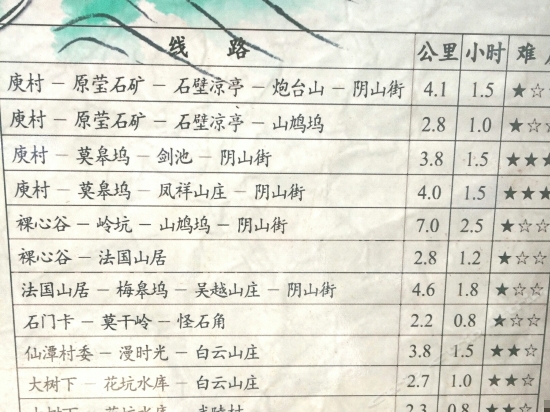 线 路 公里 小时 难
庾村 – 原莹石矿 – 石壁凉亭 – 炮台山 – 阴山街 4.1 1.5 ★☆☆
庾村 – 原莹石矿 – 石壁凉亭 – 山鸠坞 2.8 1.0 ★☆☆
庾村 – 莫皋坞 – 剑池 – 阴山街 3.8 1.5 ★★★
庾村 – 莫皋坞 – 凤祥山庄 – 阴山街 4.0 1.5 ★★★
裸心谷 – 岭坑 – 山鸠坞 – 阴山街 7.0 2.5 ★☆☆
裸心谷 – 法国山居 2.8 1.2 ★☆☆
法国山居 – 梅皋坞 – 吴越山庄 – 阴山街 4.6 1.8 ★☆☆
石门卡 – 莫干岭 – 怪石角 2.2 0.8 ★☆☆
仙潭村委 – 漫时光 – 白云山庄 3.8 1.5 ★★☆
大树下 – 花坑水库 – 白云山庄 2.7 1.0 ★★☆
大树下 – 花坑水库 2.3 0.8 ★★☆